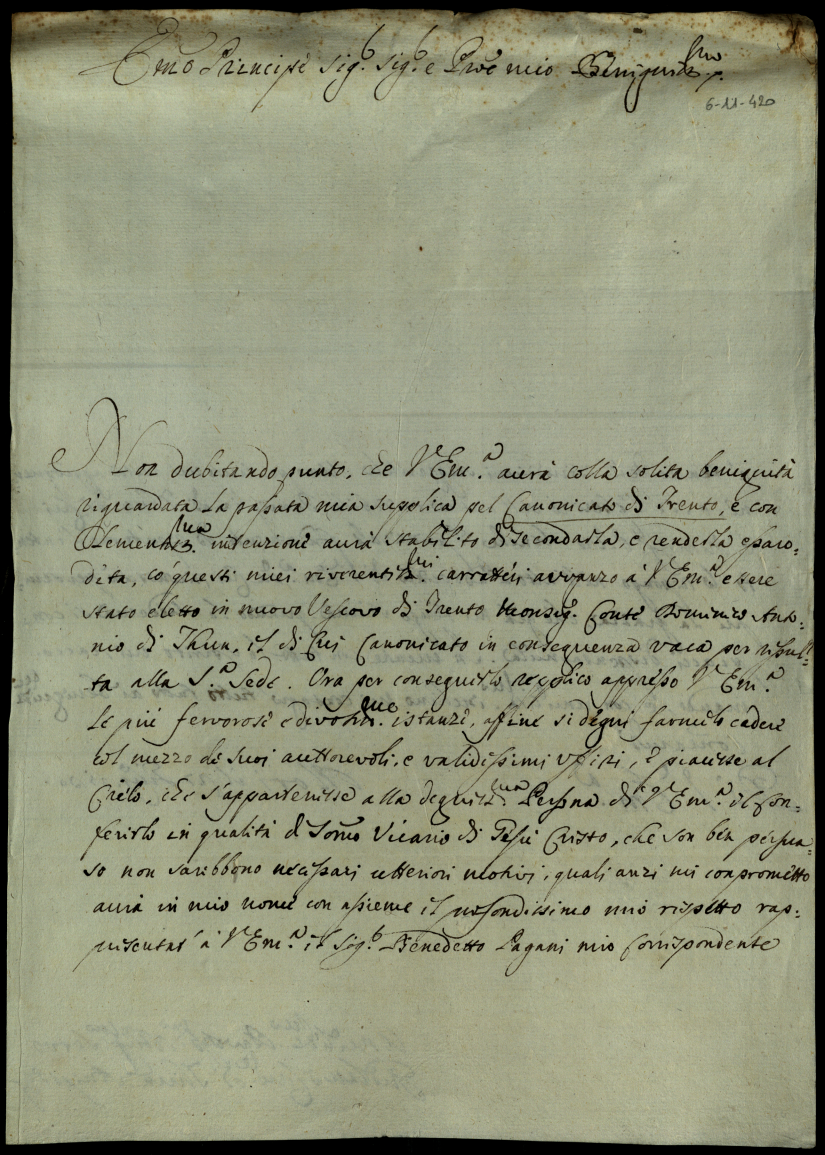 Emo Principe Sig.r Sig.r e Prone mio Benignismo
6-11-420
Non dubitando punto, che V.Em.a aurà colla solita benignità
riguardata la passata mia supplica pel Canonicato di Trento, e con
Clementissma intenzione aurà stabilito di secondarla, e renderla esau-
dita, co' questi miei riverentissmi carratteri avvanzo à V.Em.a essere
stato eletto in nuovo Vescovo di Trento Monsig. Conte Dominico Anto-
nio di Thun, il di Cui Canonicato in conseguenza vaca per
ta alla S.a Sede. Ora per conseguirlo replico appresso V.Em.a
le più fervorose e divotissme istanze, affine si degni farmelo cadere
col mezzo de suoi auttorevoli, e validissimi uffizi, è piacesse al
Cielo, che s'appartenesse alla degnissma Persona di V.Em.a il con-
ferirlo in qualità di Somo Vicario di Giesù Cristo, che son ben persua-
so non sarebbono necessari ulteriori motivi, quali anzi mi comprometto
aurà in mio nome con assieme il profondissimo mio rispetto rap-
presentar' à V.Em.a il Sig.r Benedetto Pagani mio Corrispondente